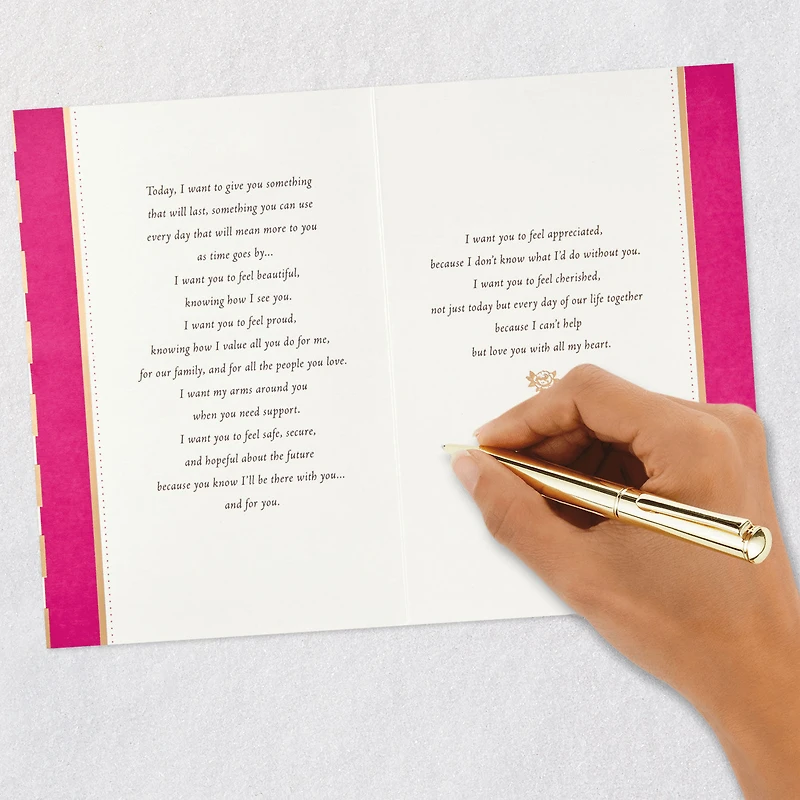 Today, I want to give you something
that will last, something you can use
every day that will mean more to you
as time goes by...
I want you to feel beautiful,
knowing how I see you.
I want you to feel proud,
knowing how I value all you do for me,
for our family, and for all the people you love.
I want my arms around you
when you need support.
I want you to feel safe, secure,
and hopeful about the future
because you know I'll be there with you...
and for you.
I want you to feel appreciated,
because I don't know what I'd do without you.
I want you to feel cherished,
not just today but every day of our life together
because I can't help
but love you with all my heart.